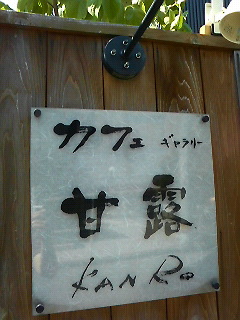 カフェ ギャラリー
甘露
KANRo